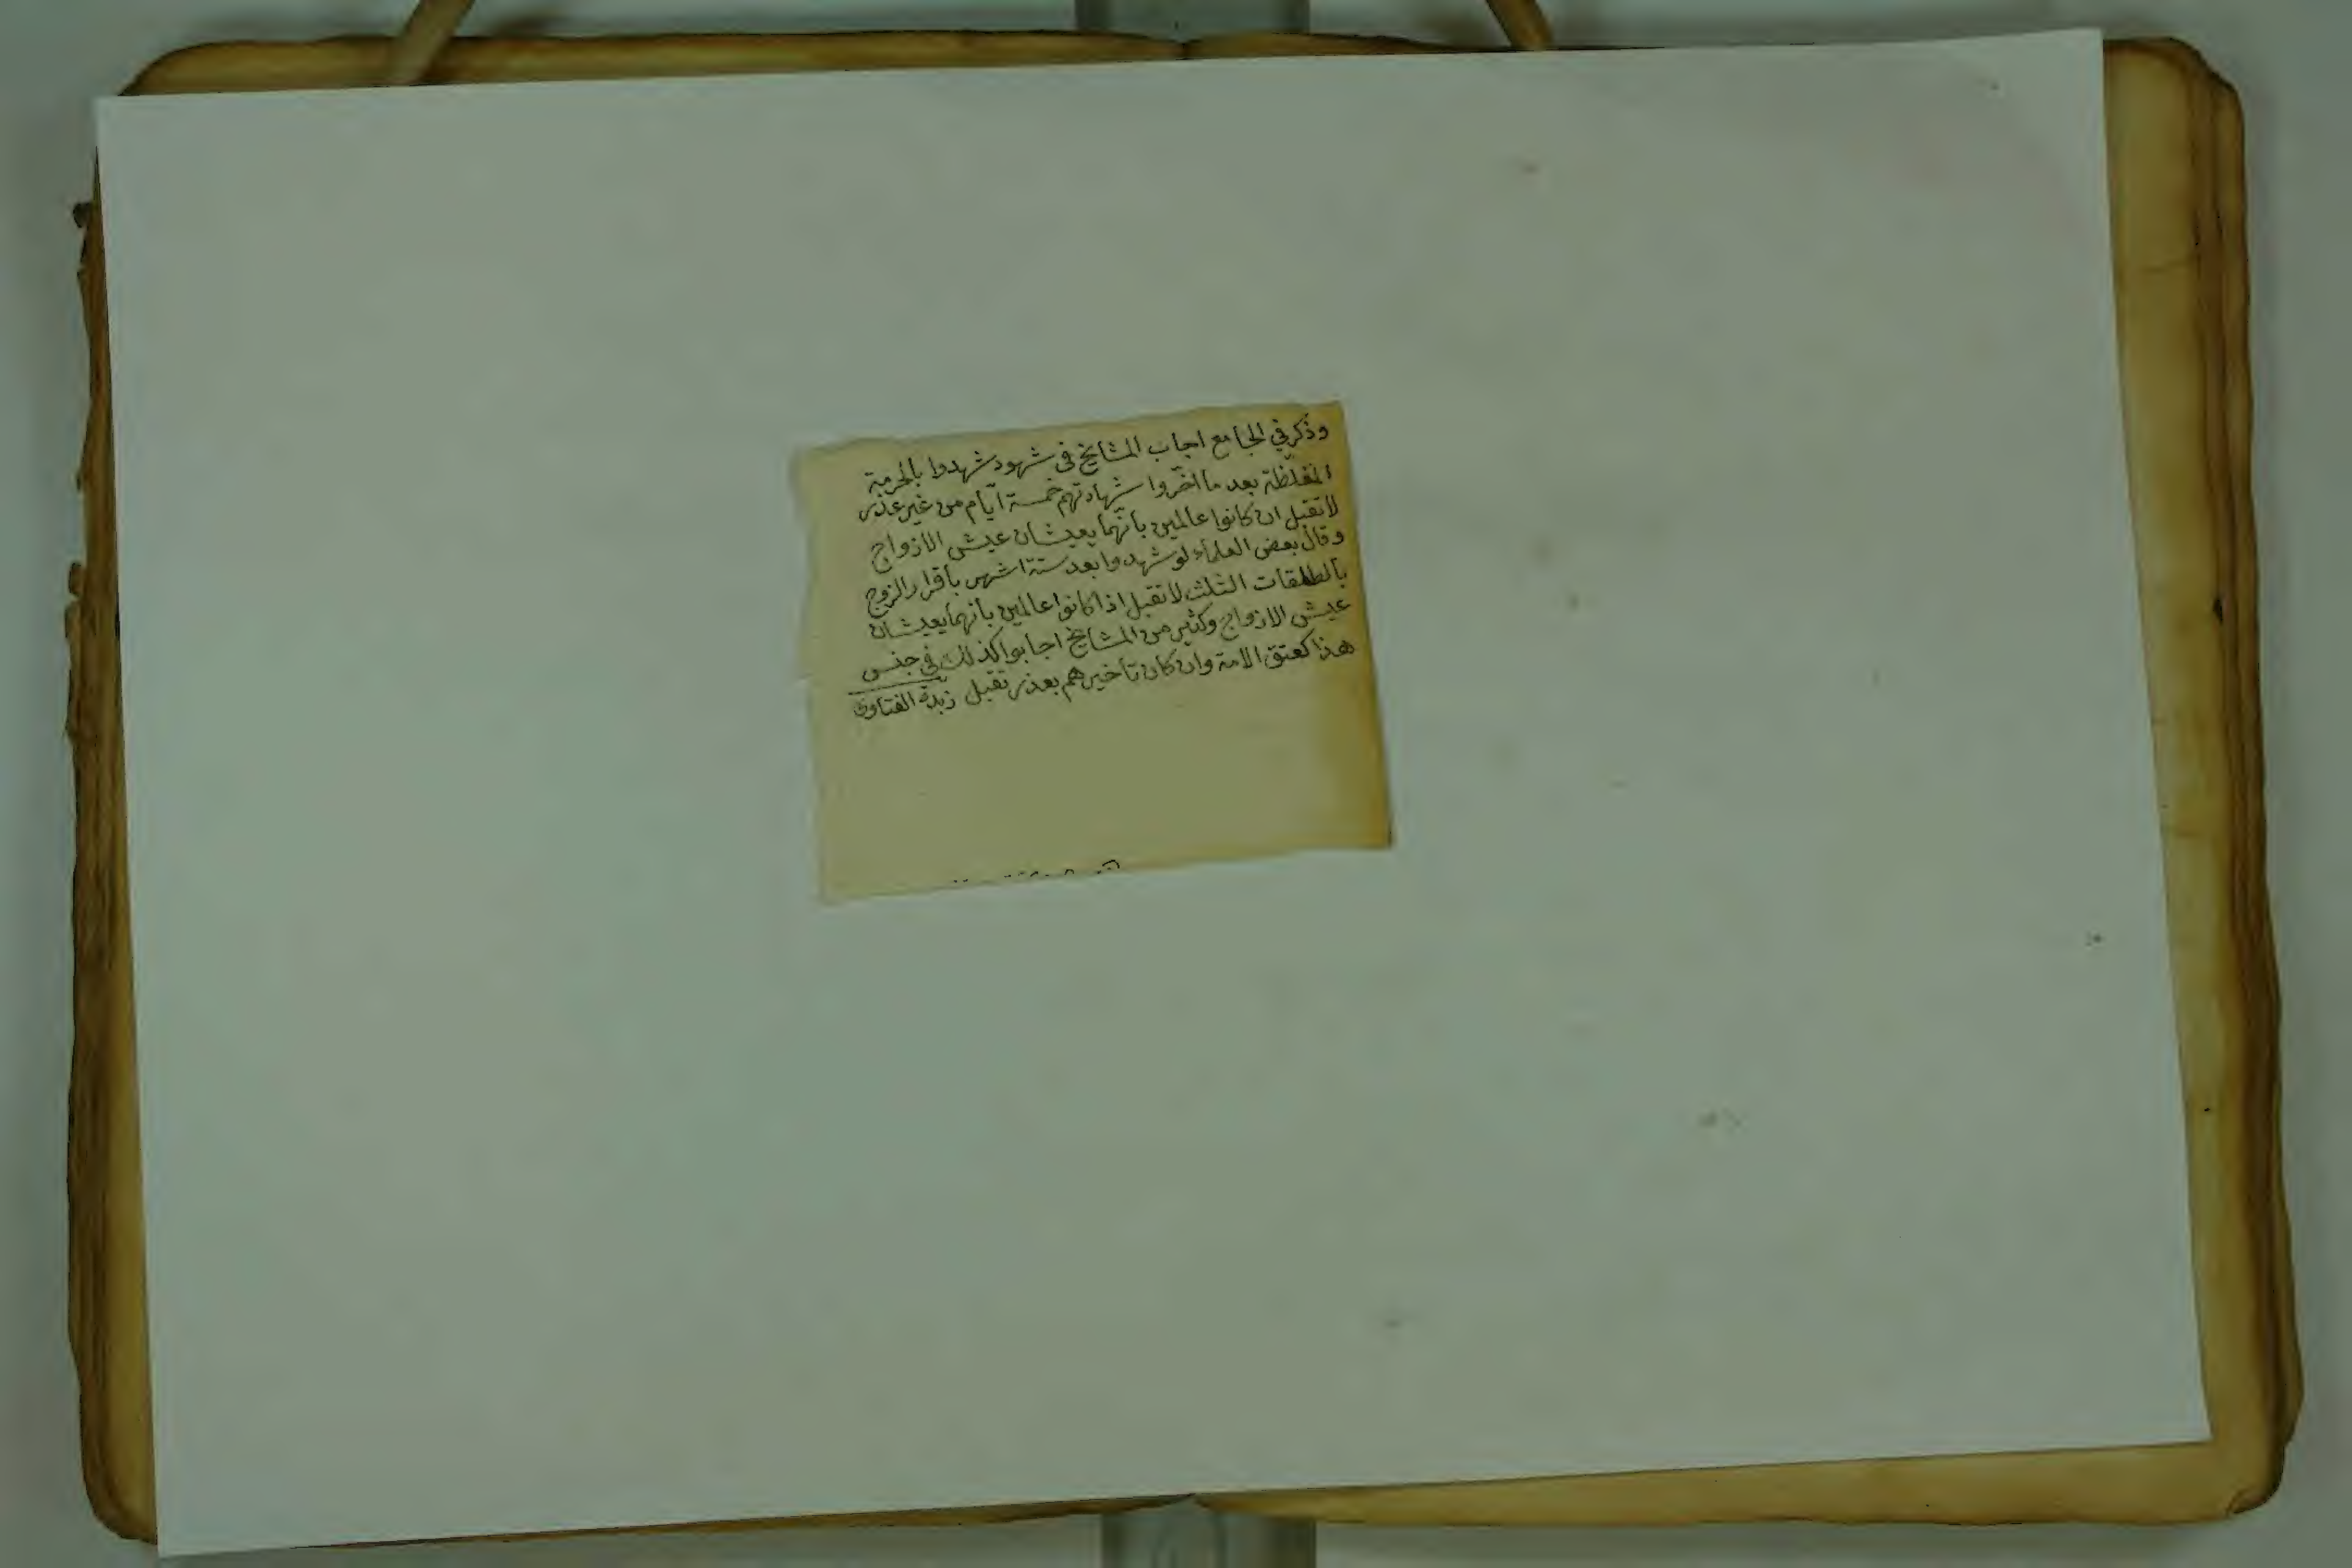 وذكر في الجامع اجاب المشايخ في شهود شهدوا بالحرمة
المغلظة بعد ما اخّروا شهادتهم خمسة ايّام من غير عذر
لا تقبل ان كانوا عالمين بانّهما يعيشان عيش الازواج
وقال بعض العلماء لو شهدوا بعد ستة اشهر باقرار الزوج
بالطلقات الثلث لا تقبل اذا كانوا عالمين بانهما يعيشان
عيش الازواج وكثير من المشايخ اجابوا كذلك في جنس
هذا كعتق الامة وان كان تأخيرهم بعذر تقبل زبدة الفتاوى